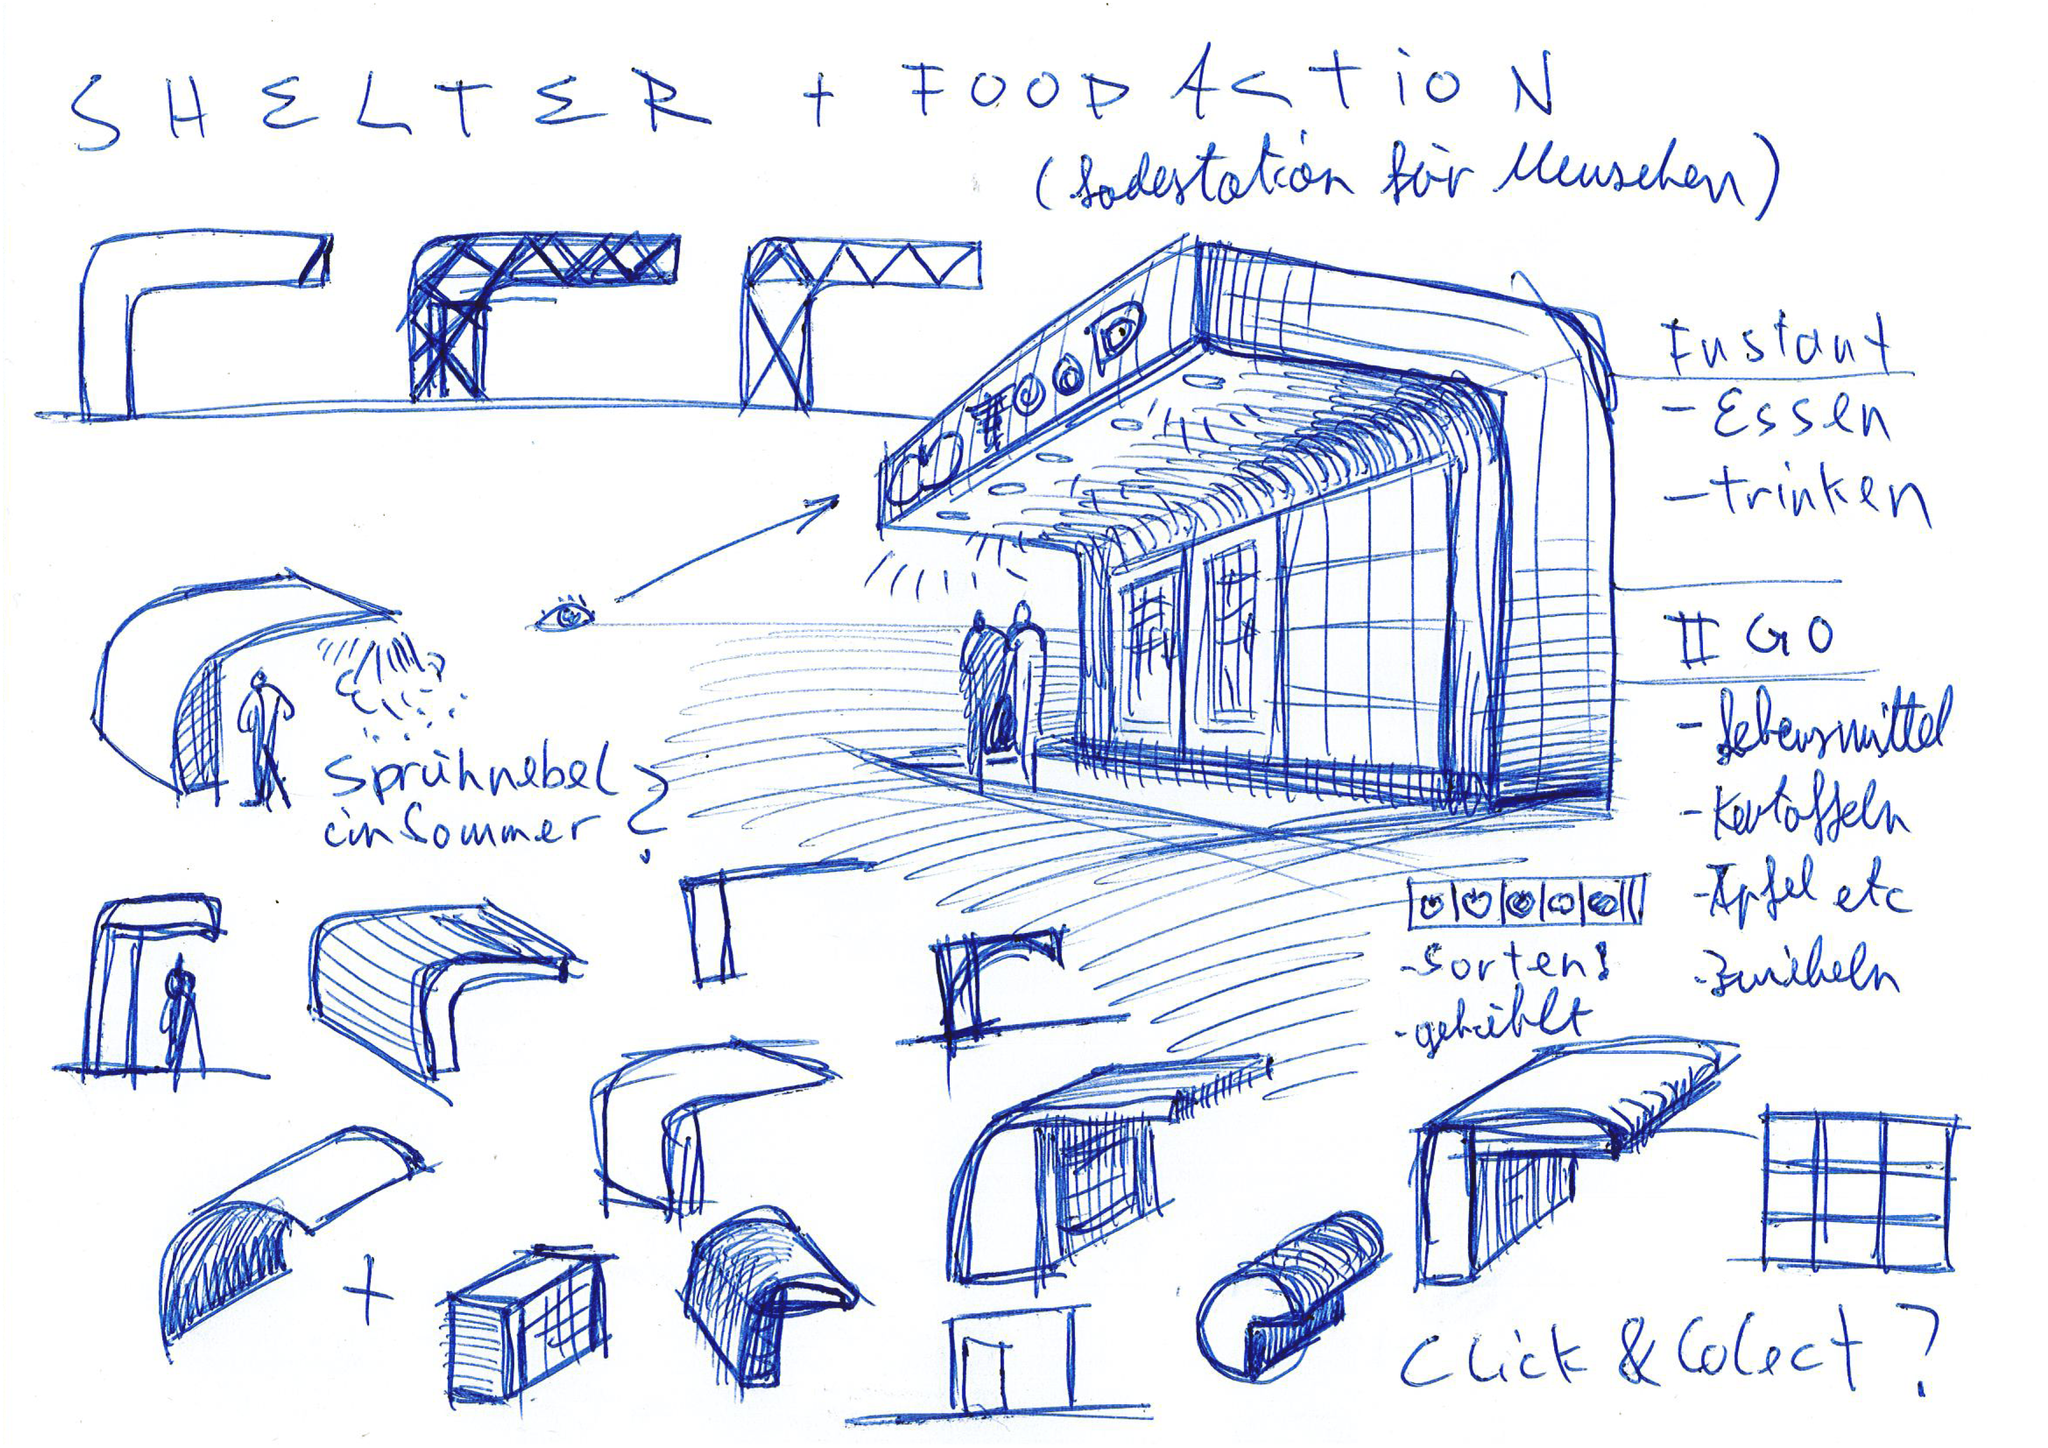 SHELTER + FOOD ACTION
(Ladestation für Menschen)
FOOD
Instant
- Essen
- trinken
II GO
- Lebensmittel
- Kartoffeln
- Äpfel etc
- Zwiebeln
Sprühnebel
im Sommer ?
- Sorten!
- gekühlt
Click & Colect ?